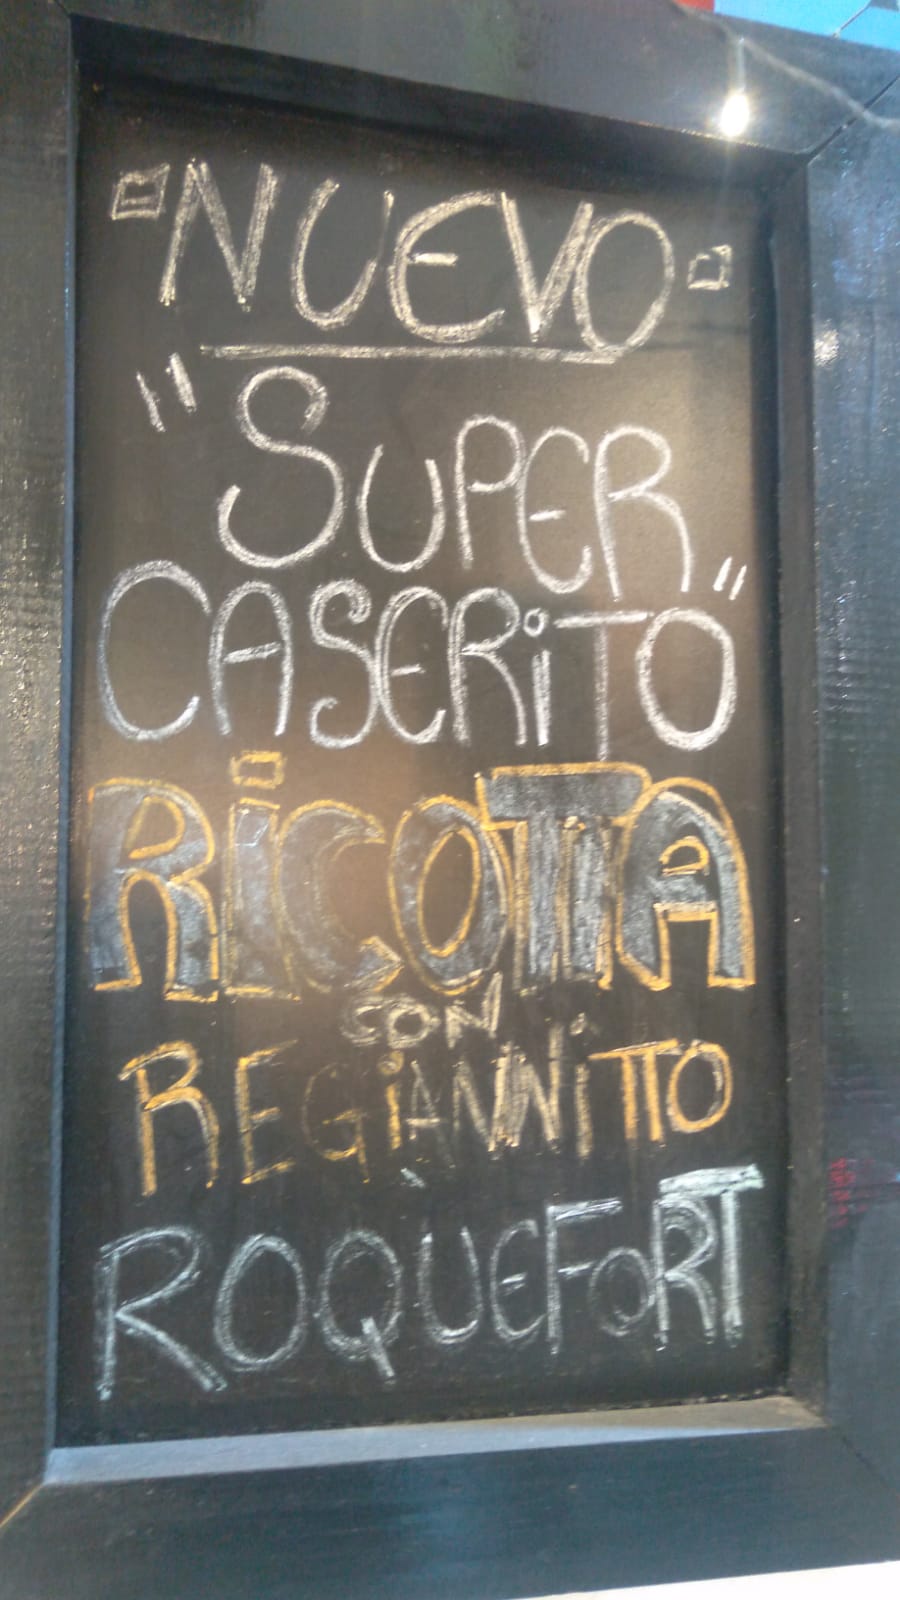 "NUEVO"
"SUPER
CASERiTO"
RiCOTTA
CON
REGiANNiTTO
ROQUEFORT